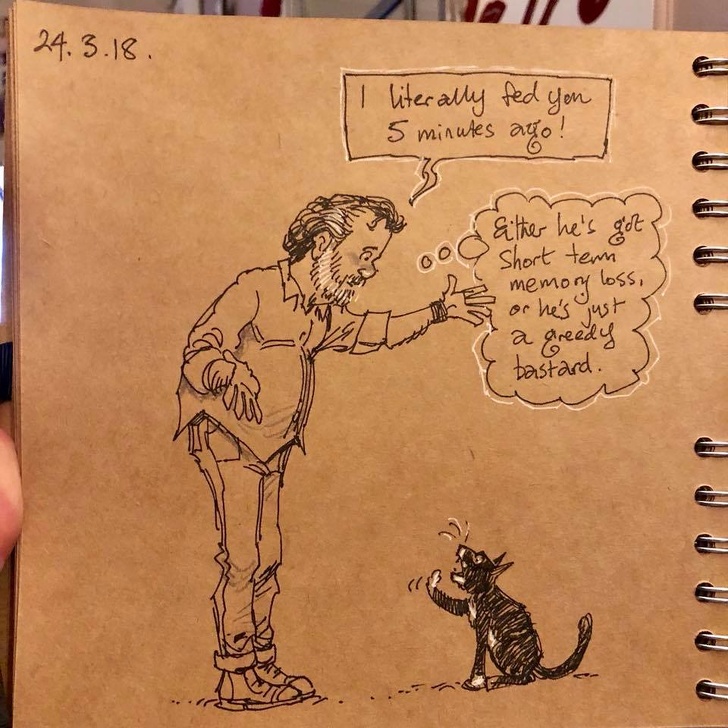 24.3.18.
I literally fed you
5 minutes ago!
Either he's got
short term
memory loss,
or he's just
a greedy
bastard.